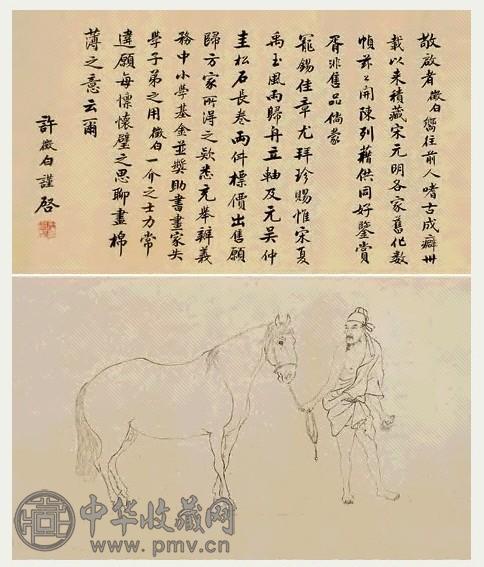 敬啟者徵白嚮往前人嗜古成癖卅
載以来積藏宋元明各家舊化數
幀茲開陳列藉供同好鑒賞
胥非售品倘蒙
寵錫佳章尤拜珍賜惟宋夏
禹玉風雨歸舟立軸及元吴仲
圭松石長卷兩件標價出售願
歸方家所得之款悉充舉辦義
務中小學基金並獎助書畫家失
學子弟之用徵白一介之士力常
違願每懍懷璧之思聊盡棉
薄之意云爾
許徵白謹啓
中华收藏网
www.pmv.cn